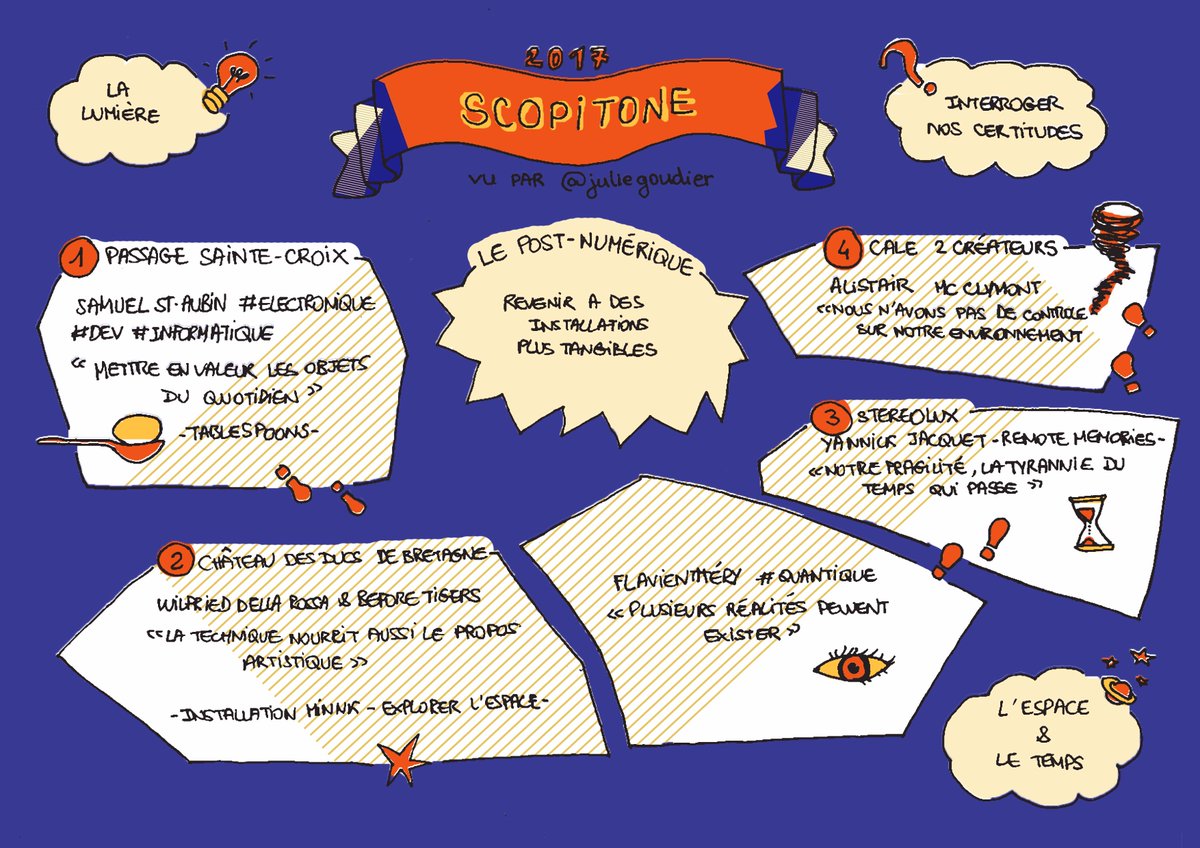 2017
SCOPITONE
VU PAR @juliegoudier
LA
LUMIÈRE
INTERROGER
NOS CERTITUDES
1 PASSAGE SAINTE-CROIX
SAMUEL ST-AUBIN #ELECTRONIQUE
#DEV #INFORMATIQUE
« METTRE EN VALEUR LES OBJETS
DU QUOTIDIEN »
-TABLESPOONS-
LE POST-NUMÉRIQUE
REVENIR A DES
INSTALLATIONS
PLUS TANGIBLES
4 CALE 2 CRÉATEURS
ALISTAIR MC CLYMONT
«NOUS N'AVONS PAS DE CONTROLE
SUR NOTRE ENVIRONNEMENT
3 STEREOLUX
YANNICK JACQUET -REMOTE MEMORIES-
«NOTRE FRAGILITÉ, LA TYRANNIE DU
TEMPS QUI PASSE »
2 CHÂTEAU DES DUCS DE BRETAGNE
WILFRIED DELLA ROSSA & BEFORE TIGERS
«LA TECHNIQUE NOURRIT AUSSI LE PROPOS
ARTISTIQUE »
-INSTALLATION MINNK - EXPLORER L'ESPACE-
FLAVIEN THÉRY #QUANTIQUE
« PLUSIEURS RÉALITÉS PEUVENT
EXISTER »
L'ESPACE
&
LE TEMPS